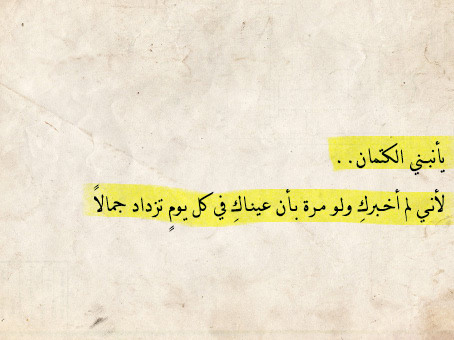 يأنبني الكتمان..
لأني لم أخبركِ ولو مرة بأن عيناكِ في كل يومٍ تزداد جمالاً